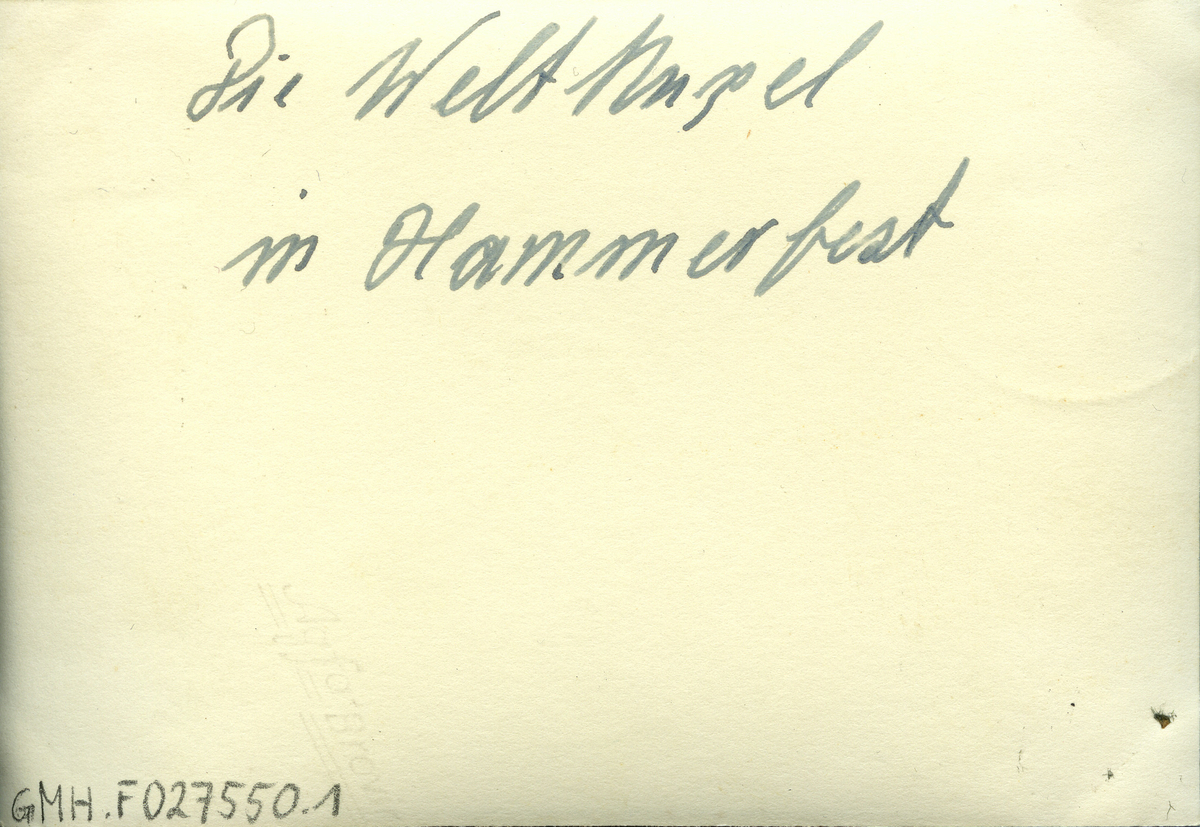 Die Weltkugel
in Hammerfest
GMH.F027550.1